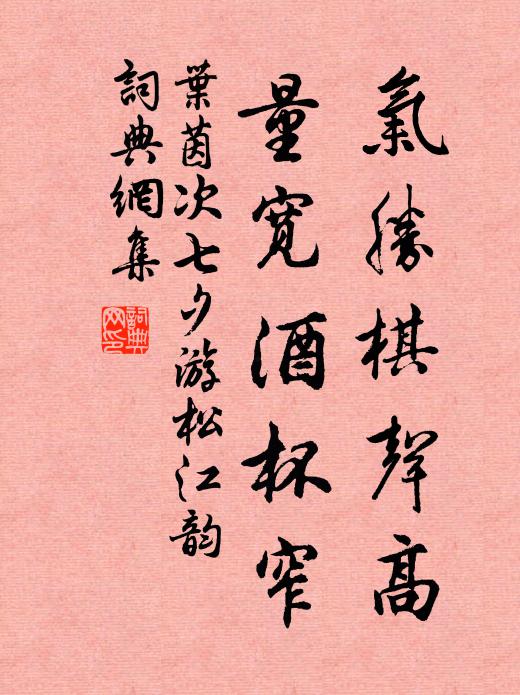 氣勝棋聲高
量寬酒杯窄
葉茵次七夕游松江韵
詞典網集
詞典网印